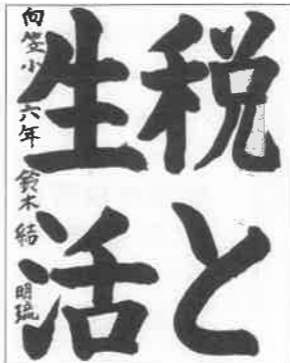 税と
生活
向笠小 六年 鈴木結明琉